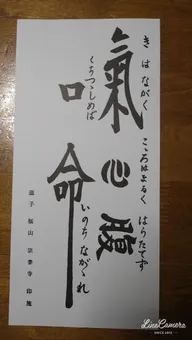 きはながく
氣
こゝろはまるく
心
はらたてず
腹
くちつゝしめば
口
いのちながゝれ
命
逗子 宗泰寺 印施
LineCamera